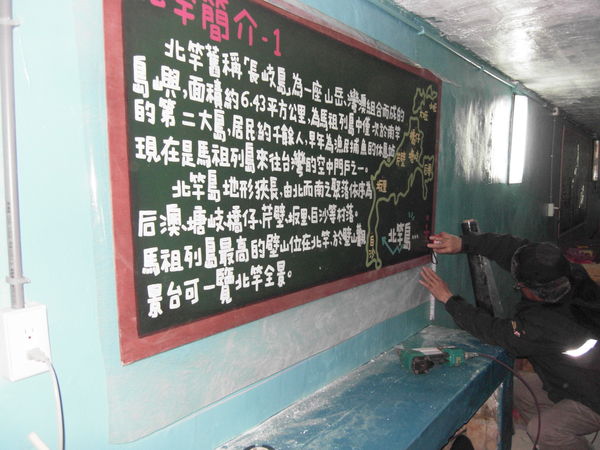 北竿簡介-1
北竿舊稱「長岐島」,為一座山岳、灣澳組合而成的
島嶼,面積約6.43平方公里,為馬祖列島中僅次於南竿
的第二大島,居民約千餘人,早年為漁民捕魚的休息站
現在是馬祖列島來往台灣的空中門戶之一。
北竿島地形狹長,由北而南之聚落依序為
后澳、塘岐、橋仔、芹壁、坂里、白沙等村落。
馬祖列島最高的壁山位在北竿,於壁山觀
景台可一覽北竿全景。
芹壁
坂里
白沙
北竿島